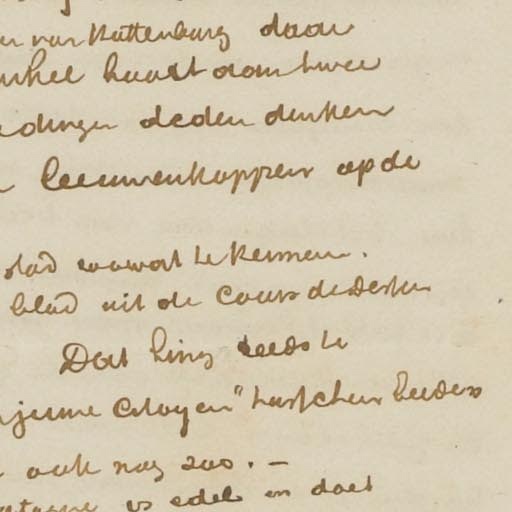 van Kattenburg daar
haast dam twee
dingen deden denken
leeuwenkoppen op de
stad waard te kennen.
blad uit de Cours de dessin
Dat hing reeds te
jeune citoyen" tusschen beiden
ook nog zoo. —
is edel en doet